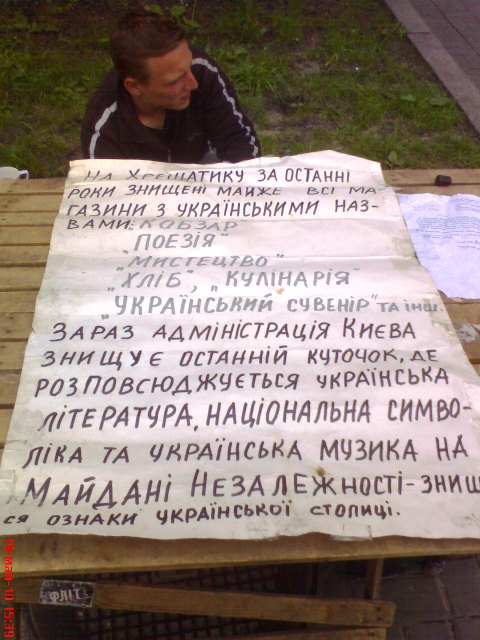 На Хрещатику за останні
роки знищені майже всі ма
газини з українськими наз-
вами: Кобзар
„Поезія"
„Мистецтво"
„Хліб", „Кулінарія"
„Український сувенір" та інш.
Зараз адміністрація Києва
знищує останній куточок, де
розповсюджується українська
література, національна симво-
ліка та українська музика на
Майдані Незалежності-знищ
ся ознаки української столиці.